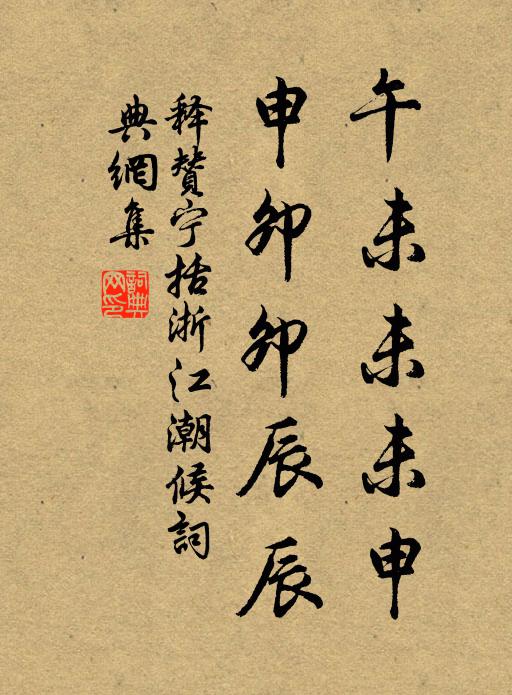 午未未未申
申卯卯辰辰
释赞宁括浙江潮候詞
典網集
詞典
网印